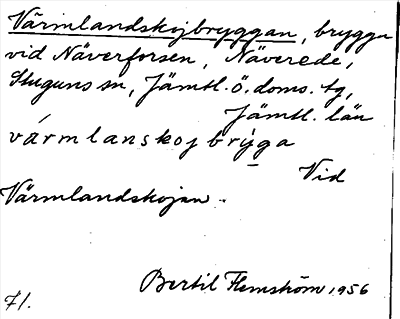 Värmlandskojbryggan, brygga
vid Näverforsen, Näverede,
Stuguns sn, Jämtl. ö. doms. tg,
Jämtl. län
vármlanskojbrỳga
Vid
Värmlandskojan.
Bertil Flemström 1956
71.